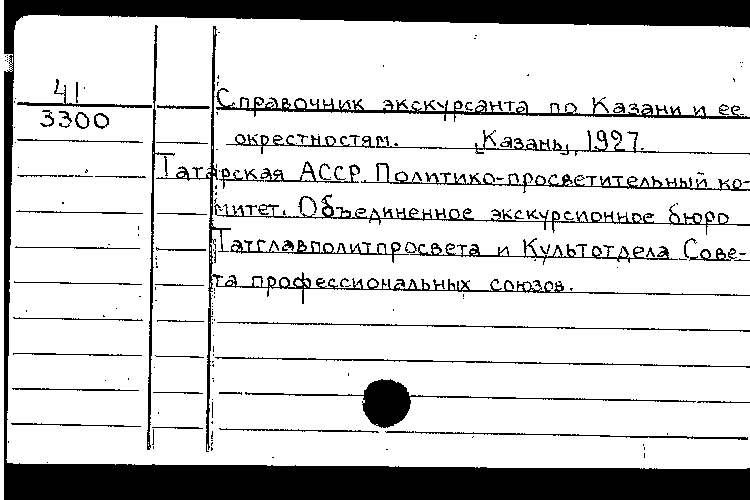 41
3300
Справочник экскурсанта по Казани и ее
окрестностям. [Казань], 1927
Татарская АССР. Политико-просветительный ко-
митет. Объединенное экскурсионное бюро
Татглавполитпросвета и Культотдела Сове-
та профессиональных союзов.